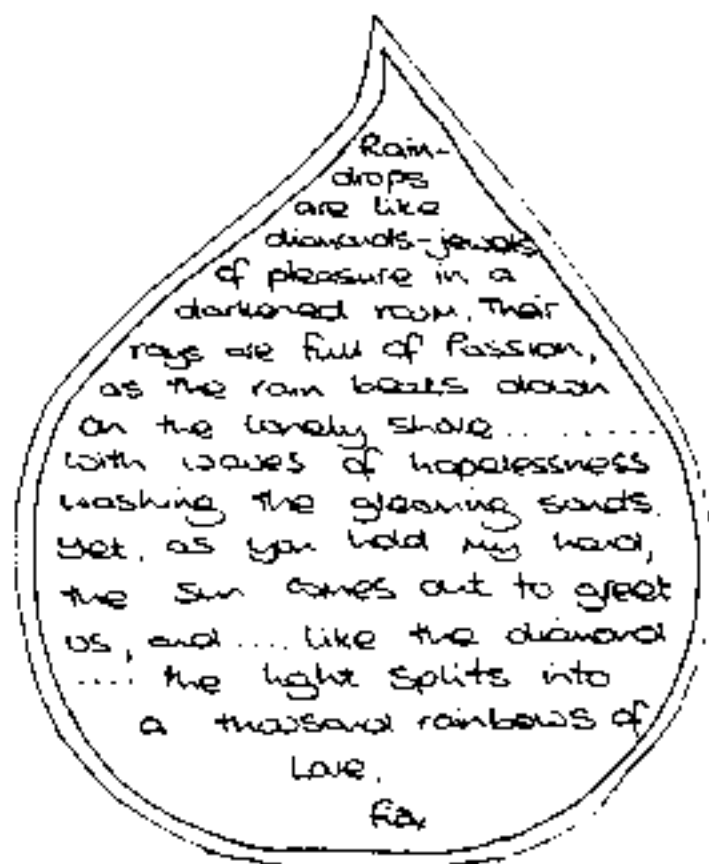 Rain-
drops
are like
diamonds-jewels
of pleasure in a
darkened room. Their
rays are full of Passion,
as the rain beats down
on the lonely shore .........
with waves of hopelessness
washing the gleaming sands.
Yet, as you hold my hand,
the sun comes out to greet
us, and .... like the diamond
.... the light splits into
a thousand rainbows of
Love.